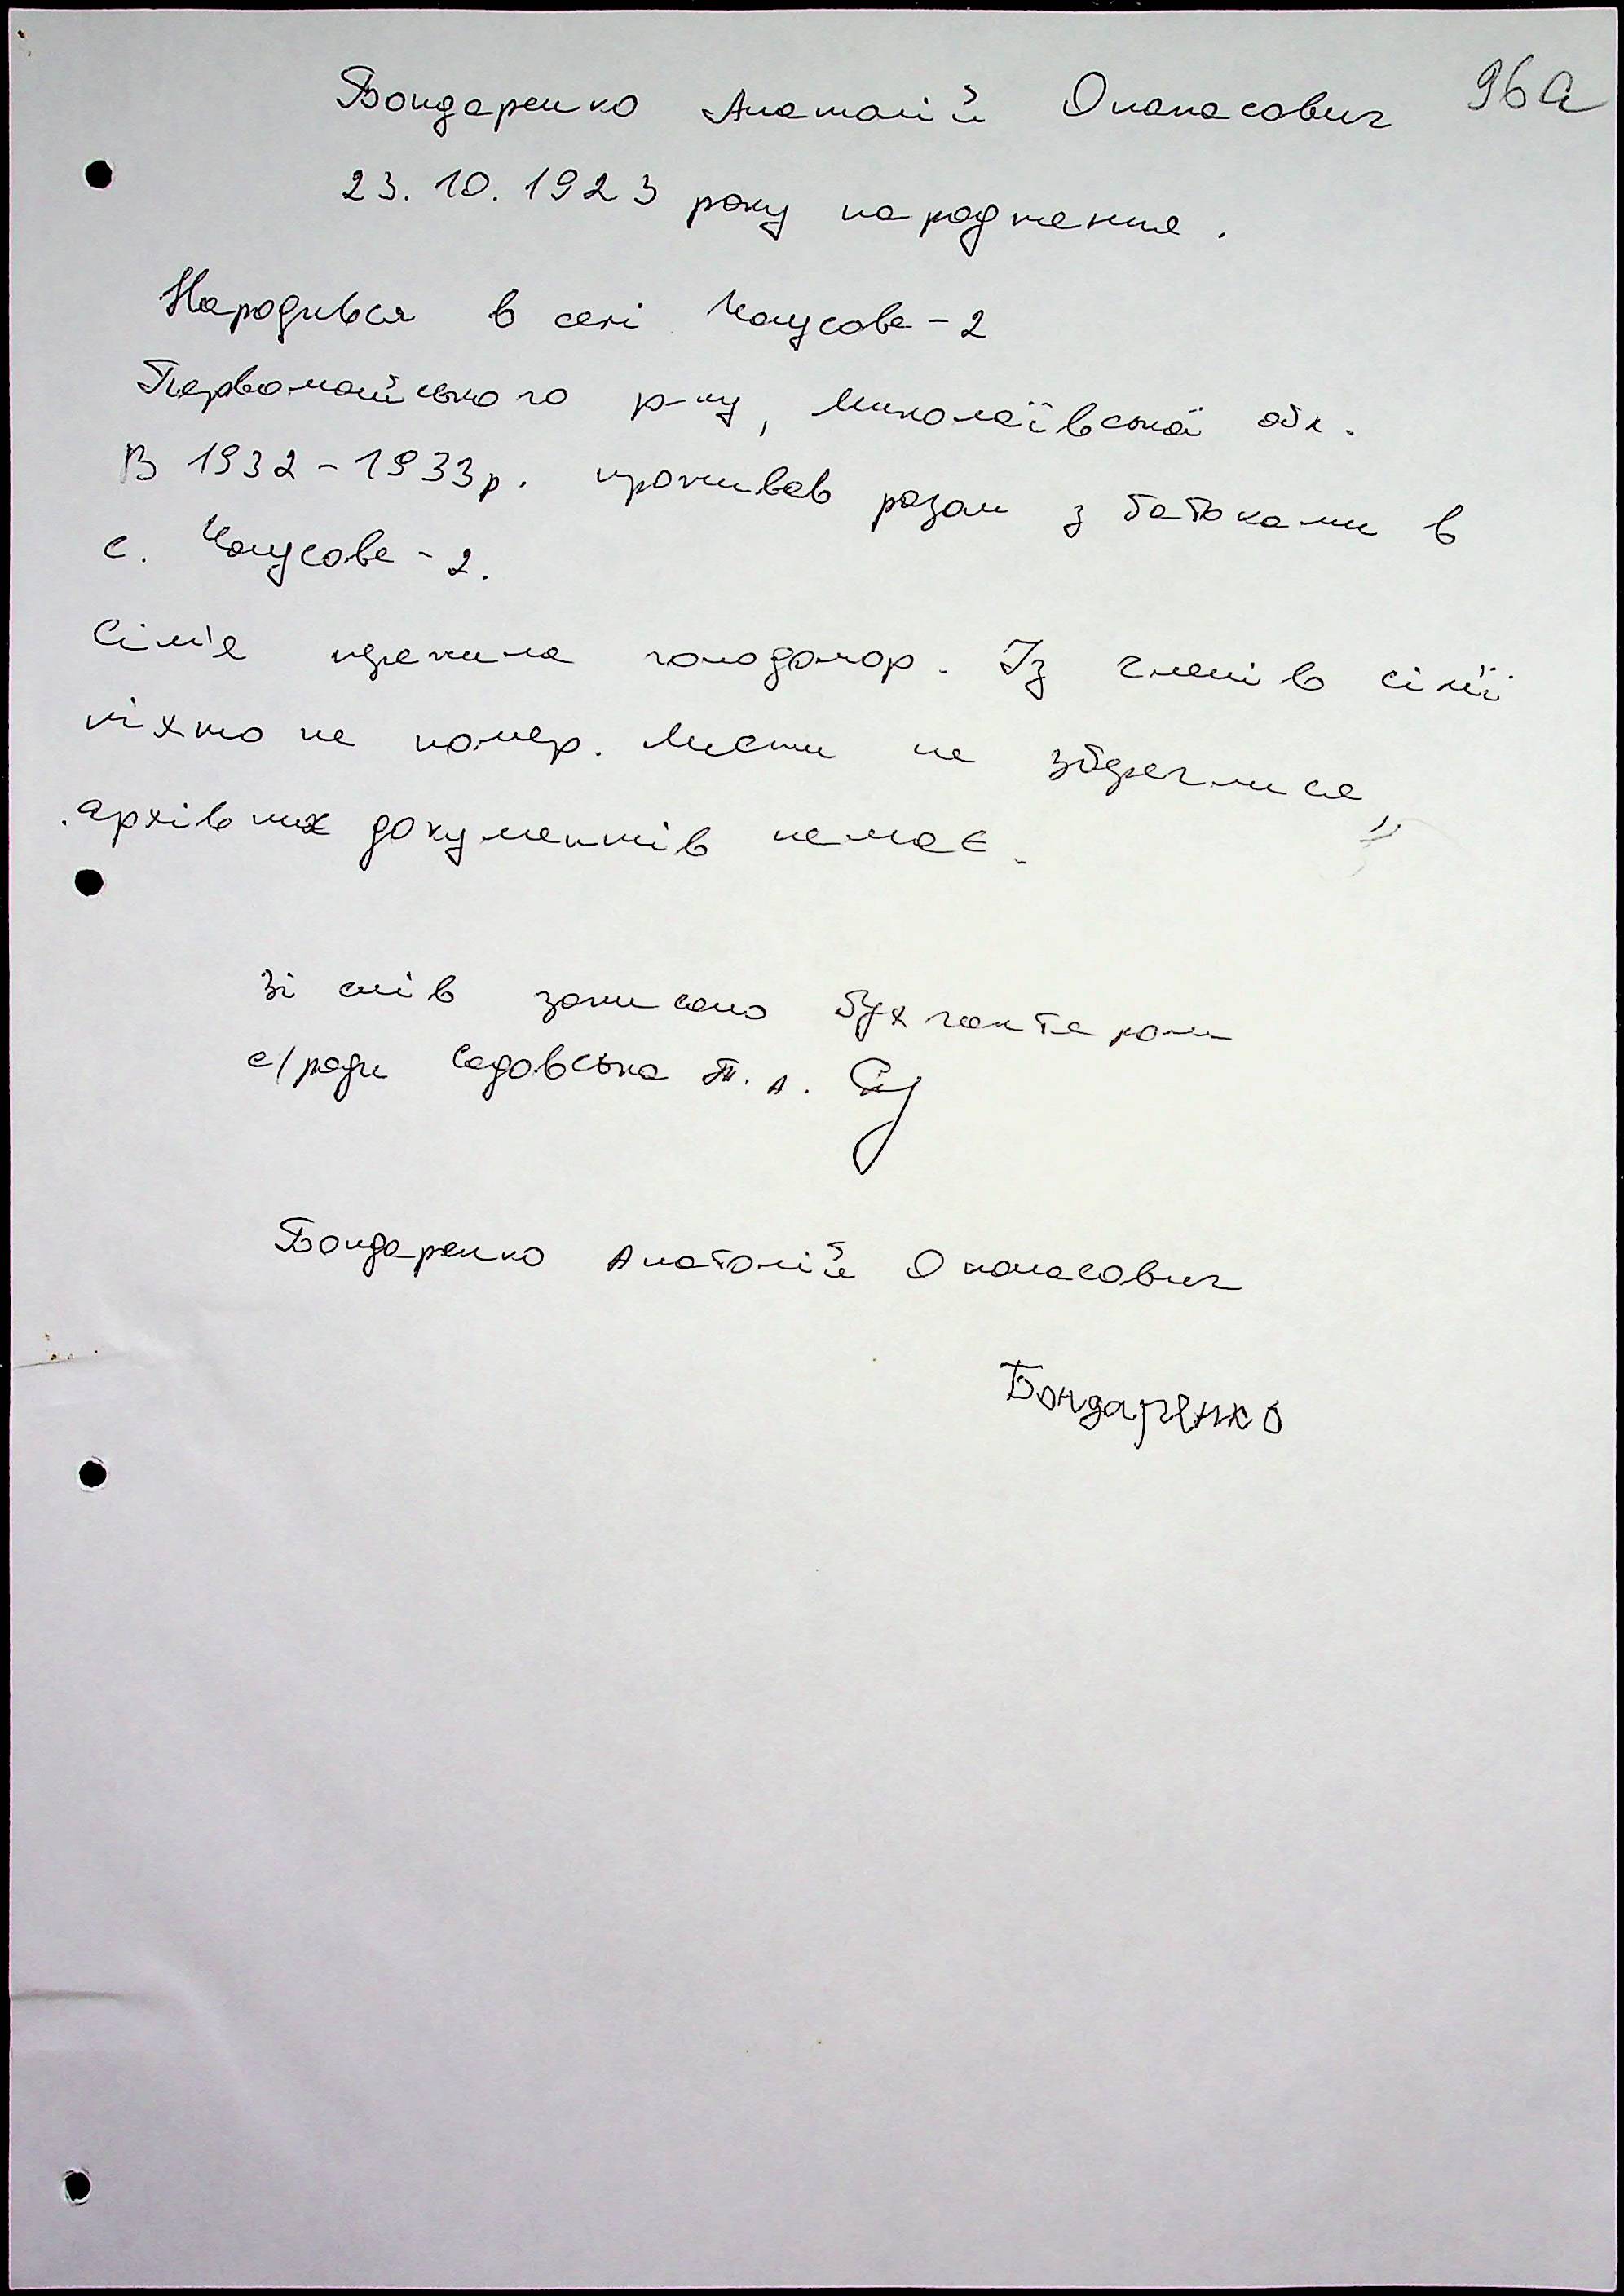 96а
Бондаренко Анатолій Опанасович
23.10.1923 року народження.
Народився в селі Чаусове-2
Первомайського р-ну, Миколаївської обл.
В 1932-1933р. проживав разом з батьками в
с. Чаусове-2.
Сім'я пережила голодомор. Із членів сім'ї
ніхто не помер. Листи не збереглися,
архівних документів немає.
Зі слів записано бухгалтером
с/ради Садовська Т. А.
Бондаренко Анатолій Опанасович
Бондаренко